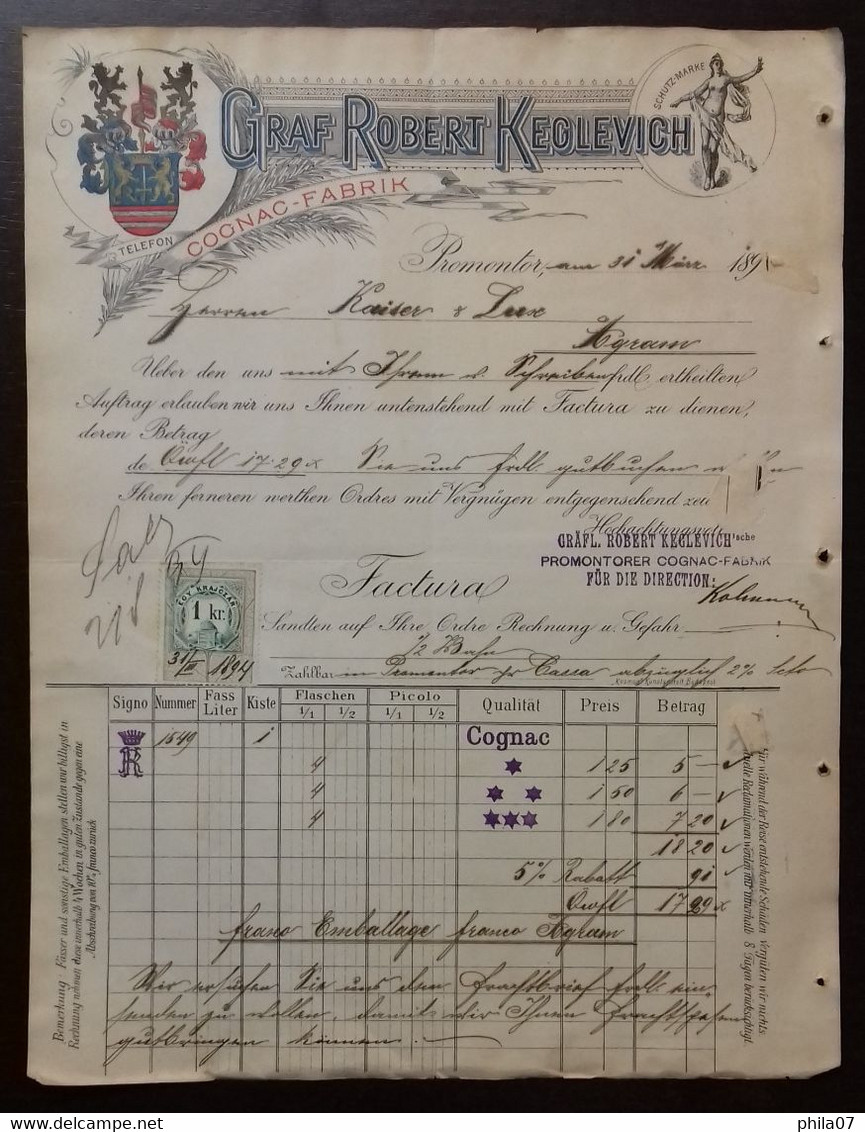 GRAF ROBERT KEGLEVICH
COGNAC-FABRIK
TELEFON
SCHUTZ-MARKE
Promontor, am 31 März 189
Herren Kaiser & Lux
Agram
Ueber den uns mit Ihrem v. Schreiben frdl. ertheilten
Auftrag erlauben wir uns Ihnen untenstehend mit Factura zu dienen,
deren Betrag
de Öwfl 17.29x Sie uns frdl. gutbuchen
Ihren ferneren werthen Ordres mit Vergnügen entgegensehend
Hochachtungsvoll
GRÄFL. ROBERT KEGLEVICH'sche
PROMONTORER COGNAC-FABRIK
FÜR DIE DIRECTION:
Factura
EGY KRAJCZÁR
1 kr.
31/III 1894
Sandten auf Ihre Ordre Rechnung u. Gefahr
Bahn
Zahlbar in Promontor pr Cassa abzüglich 2%
Signo Nummer Fass Liter Kiste Flaschen 1/1 1/2 Picolo 1/1 1/2 Qualität Preis Betrag
R 1549 1 Cognac
4 ★ 1 25 5 —
4 ★ ★ 1 50 6 —
4 ★★★ 1 80 7 20
18 20
5% Rabatt 91
Öwfl 17 29 x
franco Emballage franco Agram
Wir ersuchen Sie uns den Frachtbrief frdl. ein-
senden zu wollen, damit wir Ihnen Frachtspesen
gutbringen können.
Bemerkung: Fässer und sonstige Emballagen stellen wir billigst in
Rechnung nehmen diese innerhalb 4 Wochen in guten Zustande gegen eine
Abschreibung von 10% franco zurück
Für während der Reise entstehende Schäden vergüten wir nichts
Reclamationen werden nur innerhalb 8 Tagen berücksichtigt
phila07